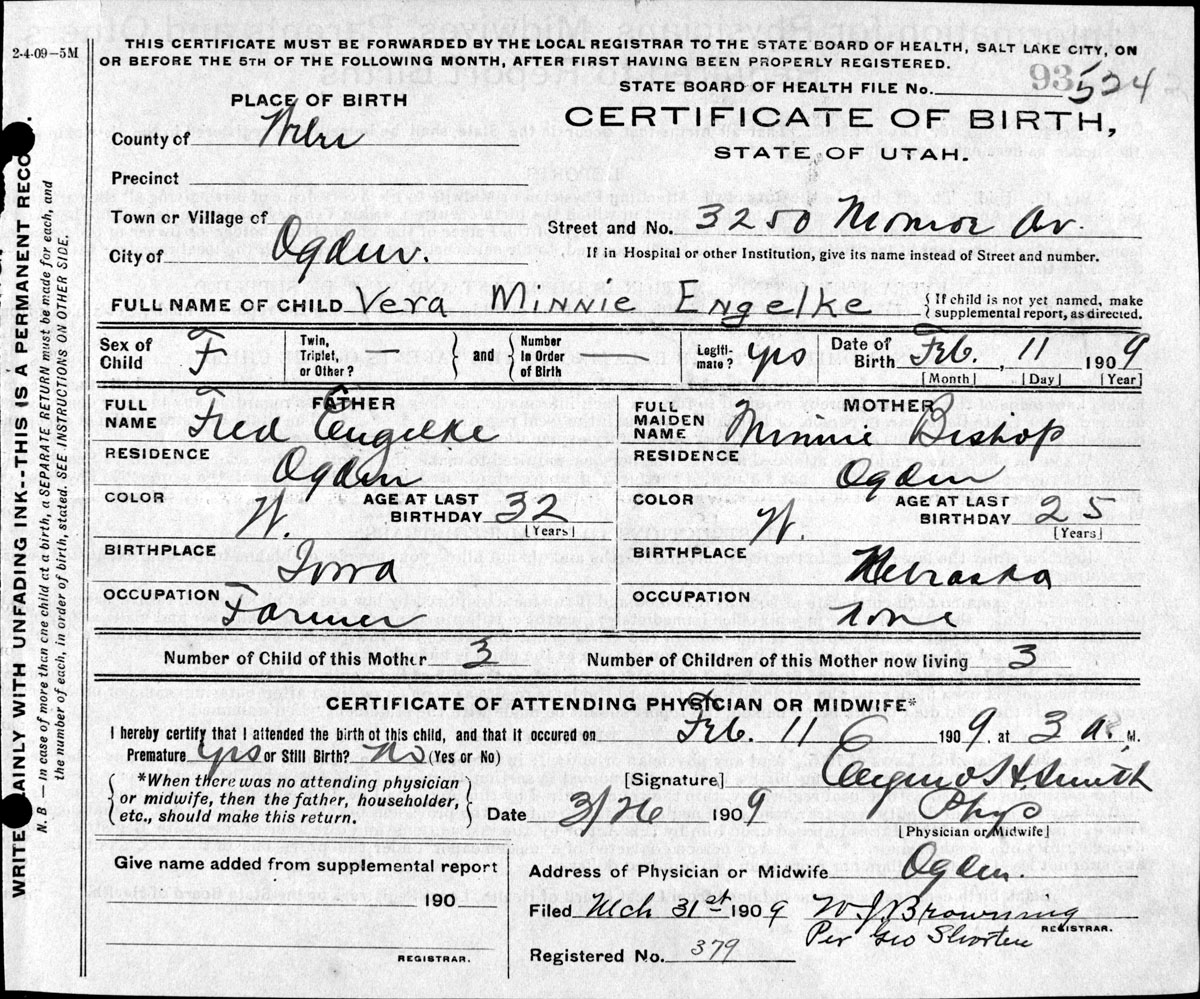 2-4-09—5M
THIS CERTIFICATE MUST BE FORWARDED BY THE LOCAL REGISTRAR TO THE STATE BOARD OF HEALTH, SALT LAKE CITY, ON
OR BEFORE THE 5TH OF THE FOLLOWING MONTH, AFTER FIRST HAVING BEEN PROPERLY REGISTERED.
STATE BOARD OF HEALTH FILE No. 93 524
PLACE OF BIRTH
CERTIFICATE OF BIRTH,
STATE OF UTAH.
County of Weber
Precinct
Town or Village of
Street and No. 3250 Monroe Av.
City of Ogden.
If in Hospital or other Institution, give its name instead of Street and number.
FULL NAME OF CHILD Vera Minnie Engelke
{ If child is not yet named, make
supplemental report, as directed.
Sex of Child F
Twin, Triplet, or Other? — } and { Number in Order of Birth —
Legiti- mate? yes
Date of Birth Feb. 11 1909
[Month] [Day] [Year]
FATHER
FULL NAME Fred Engelke
RESIDENCE Ogden
COLOR W. AGE AT LAST BIRTHDAY 32 [Years]
BIRTHPLACE Iowa
OCCUPATION Farmer
MOTHER
FULL MAIDEN NAME Minnie Bishop
RESIDENCE Ogden
COLOR W. AGE AT LAST BIRTHDAY 25 [Years]
BIRTHPLACE Nebraska
OCCUPATION None
Number of Child of this Mother 3 Number of Children of this Mother now living 3
CERTIFICATE OF ATTENDING PHYSICIAN OR MIDWIFE*
I hereby certify that I attended the birth of this child, and that it occured on Feb. 11 1909. at 3 a. M.
Premature yes or Still Birth? No (Yes or No)
*When there was no attending physician
or midwife, then the father, householder,
etc., should make this return.
[Signature] H. Smith
Date 3/26 1909 Phys
[Physician or Midwife]
Give name added from supplemental report
190
REGISTRAR.
Address of Physician or Midwife Ogden.
Filed Mch 31st 1909 W J Browning
REGISTRAR.
Per Geo Shorten
Registered No. 379
WRITE PLAINLY WITH UNFADING INK--THIS IS A PERMANENT RECO
N. B.—In case of more than one child at a birth, a SEPARATE RETURN must be made for each, and
the number of each, in order of birth, stated. SEE INSTRUCTIONS ON OTHER SIDE.